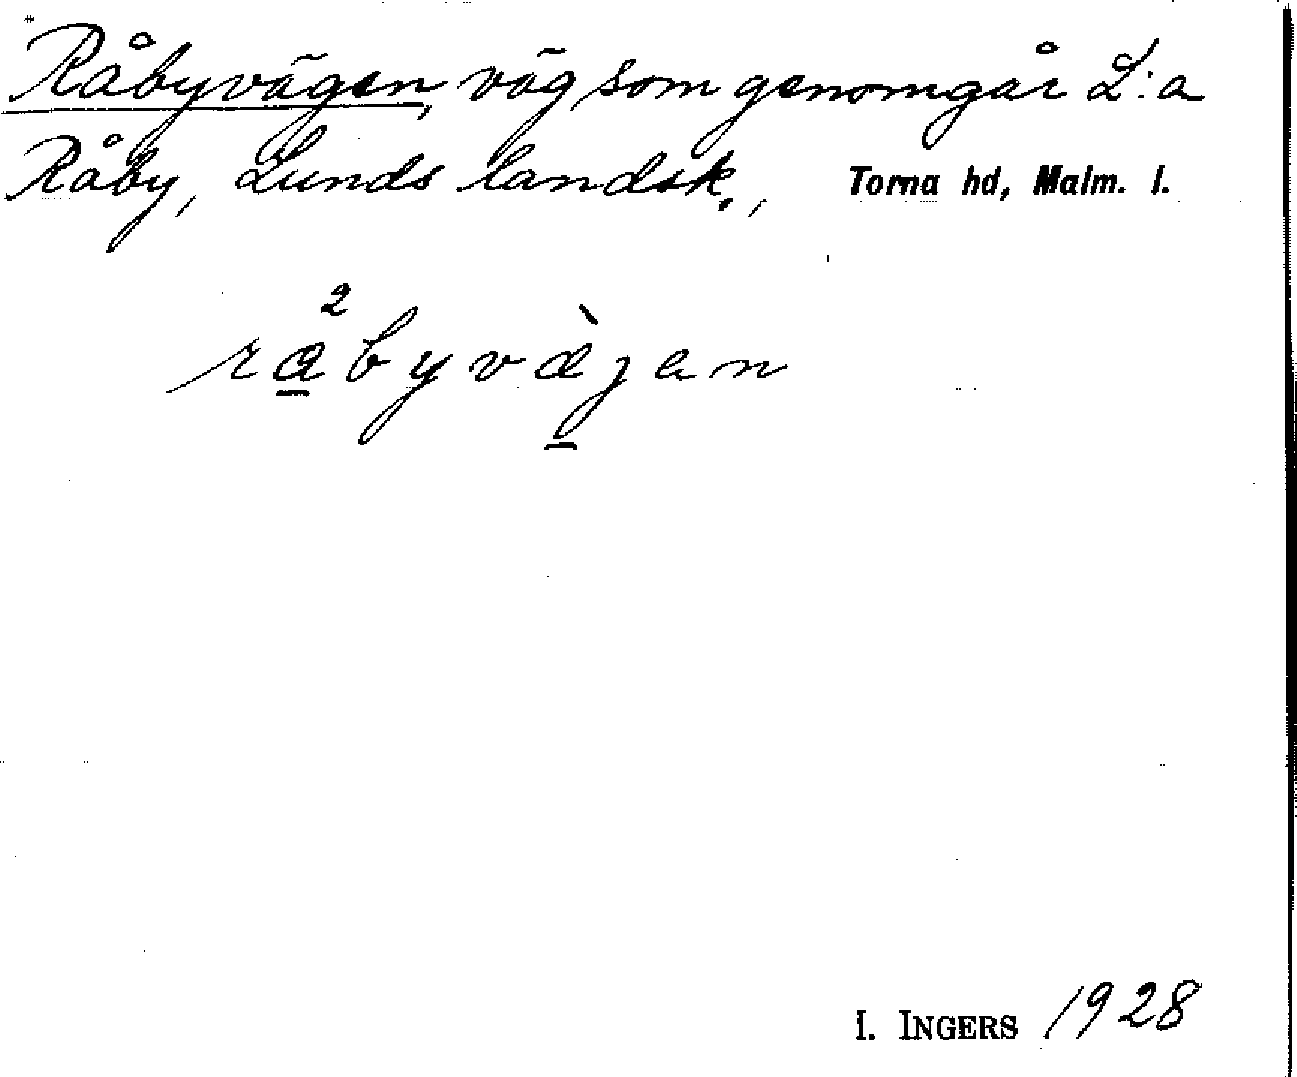 Råbyvägen, väg som genomgår L:a
Råby, Lunds landsk., Torna hd, Malm. l.
rå²byvæ̀jen
I. INGERS 1928